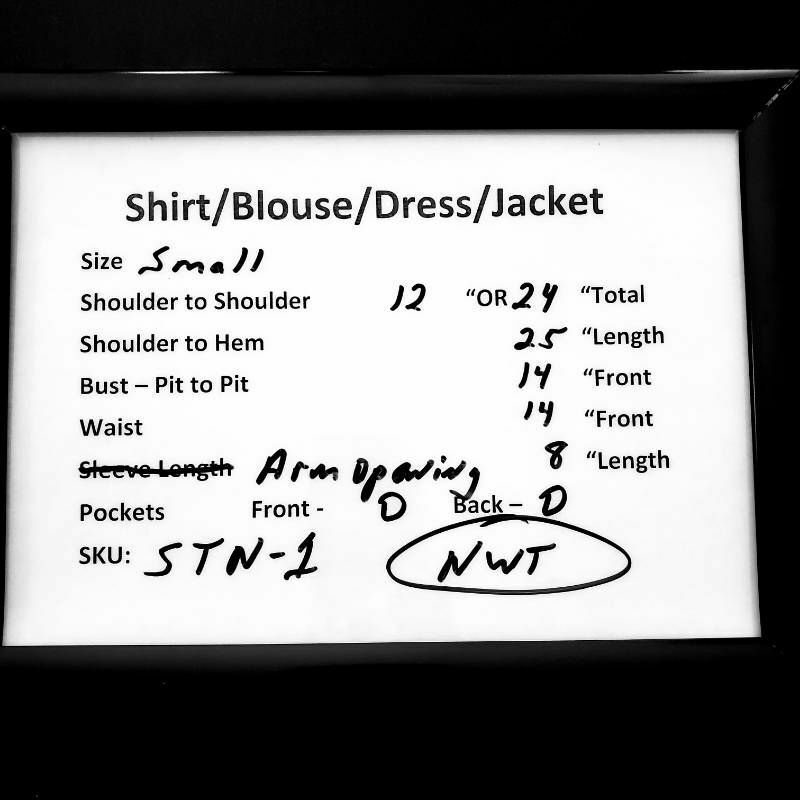 Shirt/Blouse/Dress/Jacket
Size Small
Shoulder to Shoulder 12 "OR 24 "Total
Shoulder to Hem 25 "Length
Bust – Pit to Pit 14 "Front
Waist 14 "Front
Sleeve Length Arm opening 8 "Length
Pockets Front - 0 Back – 0
SKU: STN-1 NWT